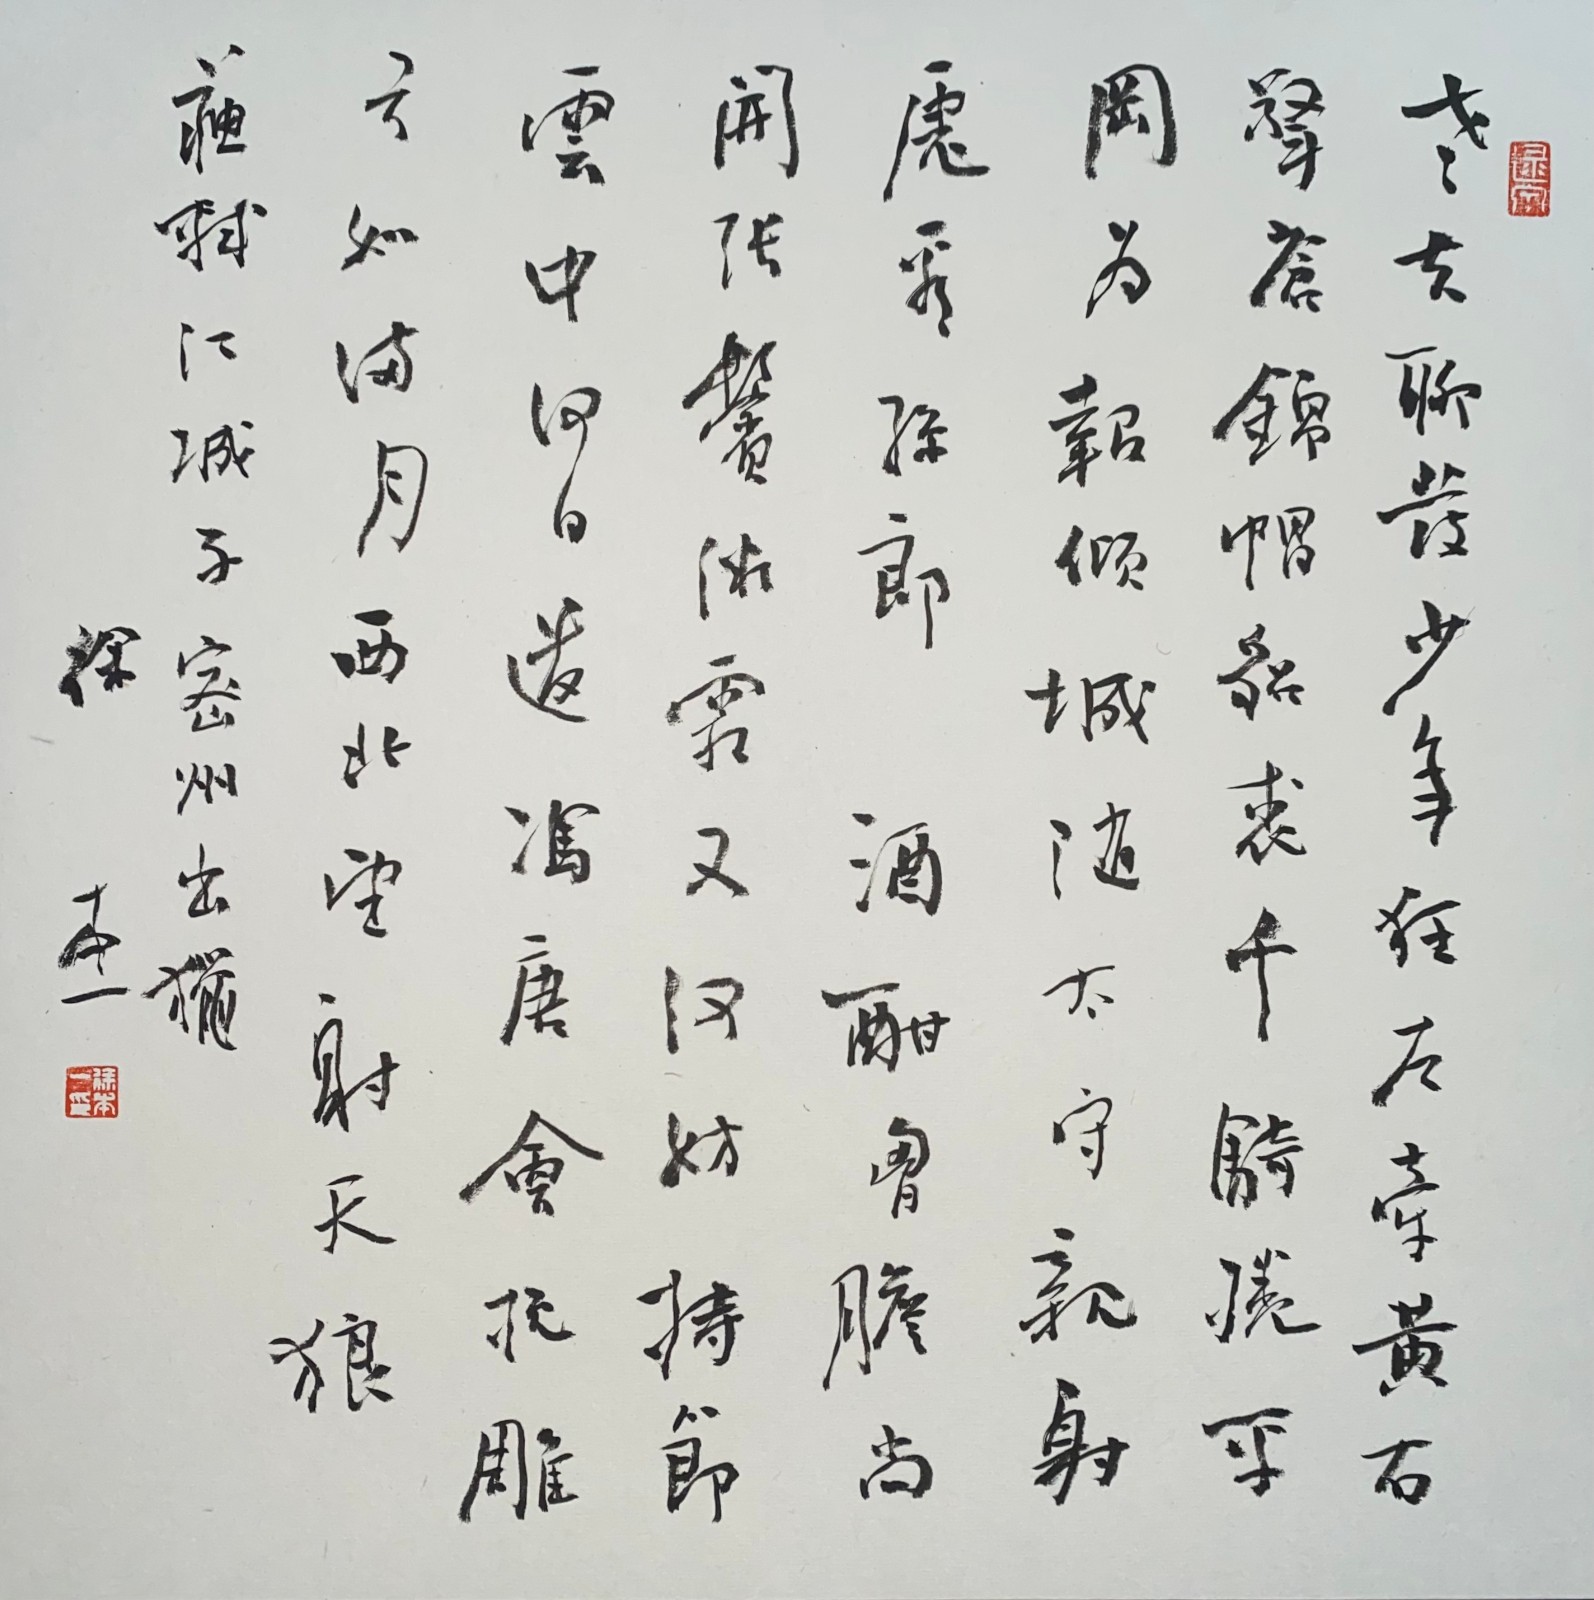 老夫聊發少年狂左牽黃右
擎蒼錦帽貂裘千騎捲平
岡为報傾城随太守親射
虎看孫郎 酒酣胷膽尚
開張鬢微霜又何妨持節
雲中何日遣馮唐會挽雕
弓如满月西北望射天狼
蘇軾江城子密州出獵
徐本一
徐本一印